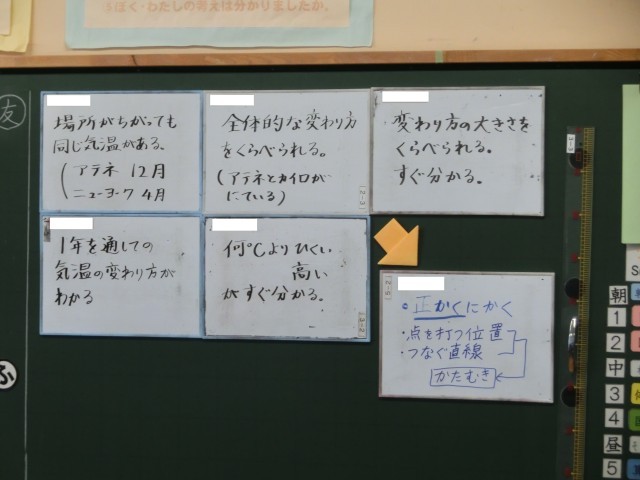 ぼく・わたしの考えは分かりましたか。
友
場所がちがっても
同じ気温がある。
(アテネ 12月
ニューヨーク 4月
全体的な変わり方
をくらべられる。
(アテネとカイロが
にている)
変わり方の大きさを
くらべられる。
すぐ分かる。
1年を通しての
気温の変わり方が
わかる
何℃よりひくい
高い
がすぐ分かる。
・正かくにかく
・点を打つ位置
・つなぐ直線
かたむき
ふ
朝
1
2
中
3
4
昼
5